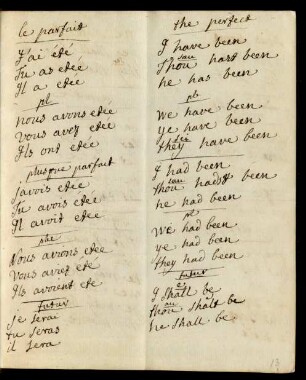 le parfait
J'ai été
tu as etée
Il a etée
pl
nous avons etée
vous avez etée
Ils ont etée
plus que parfait
j'avois etée
Tu avois etée
Il avoit etée
Nous avions etée
Vous aviez eté
Ils avoient eté
futur
je serai
tu seras
il sera
the perfect
I have been
Thou hast been
he has been
pl
We have been
ye have been
they have been
I had been
thou hadst been
he had been
pl
We had been
ye had been
they had been
futur
I shall be
thou shalt be
he shall be
13